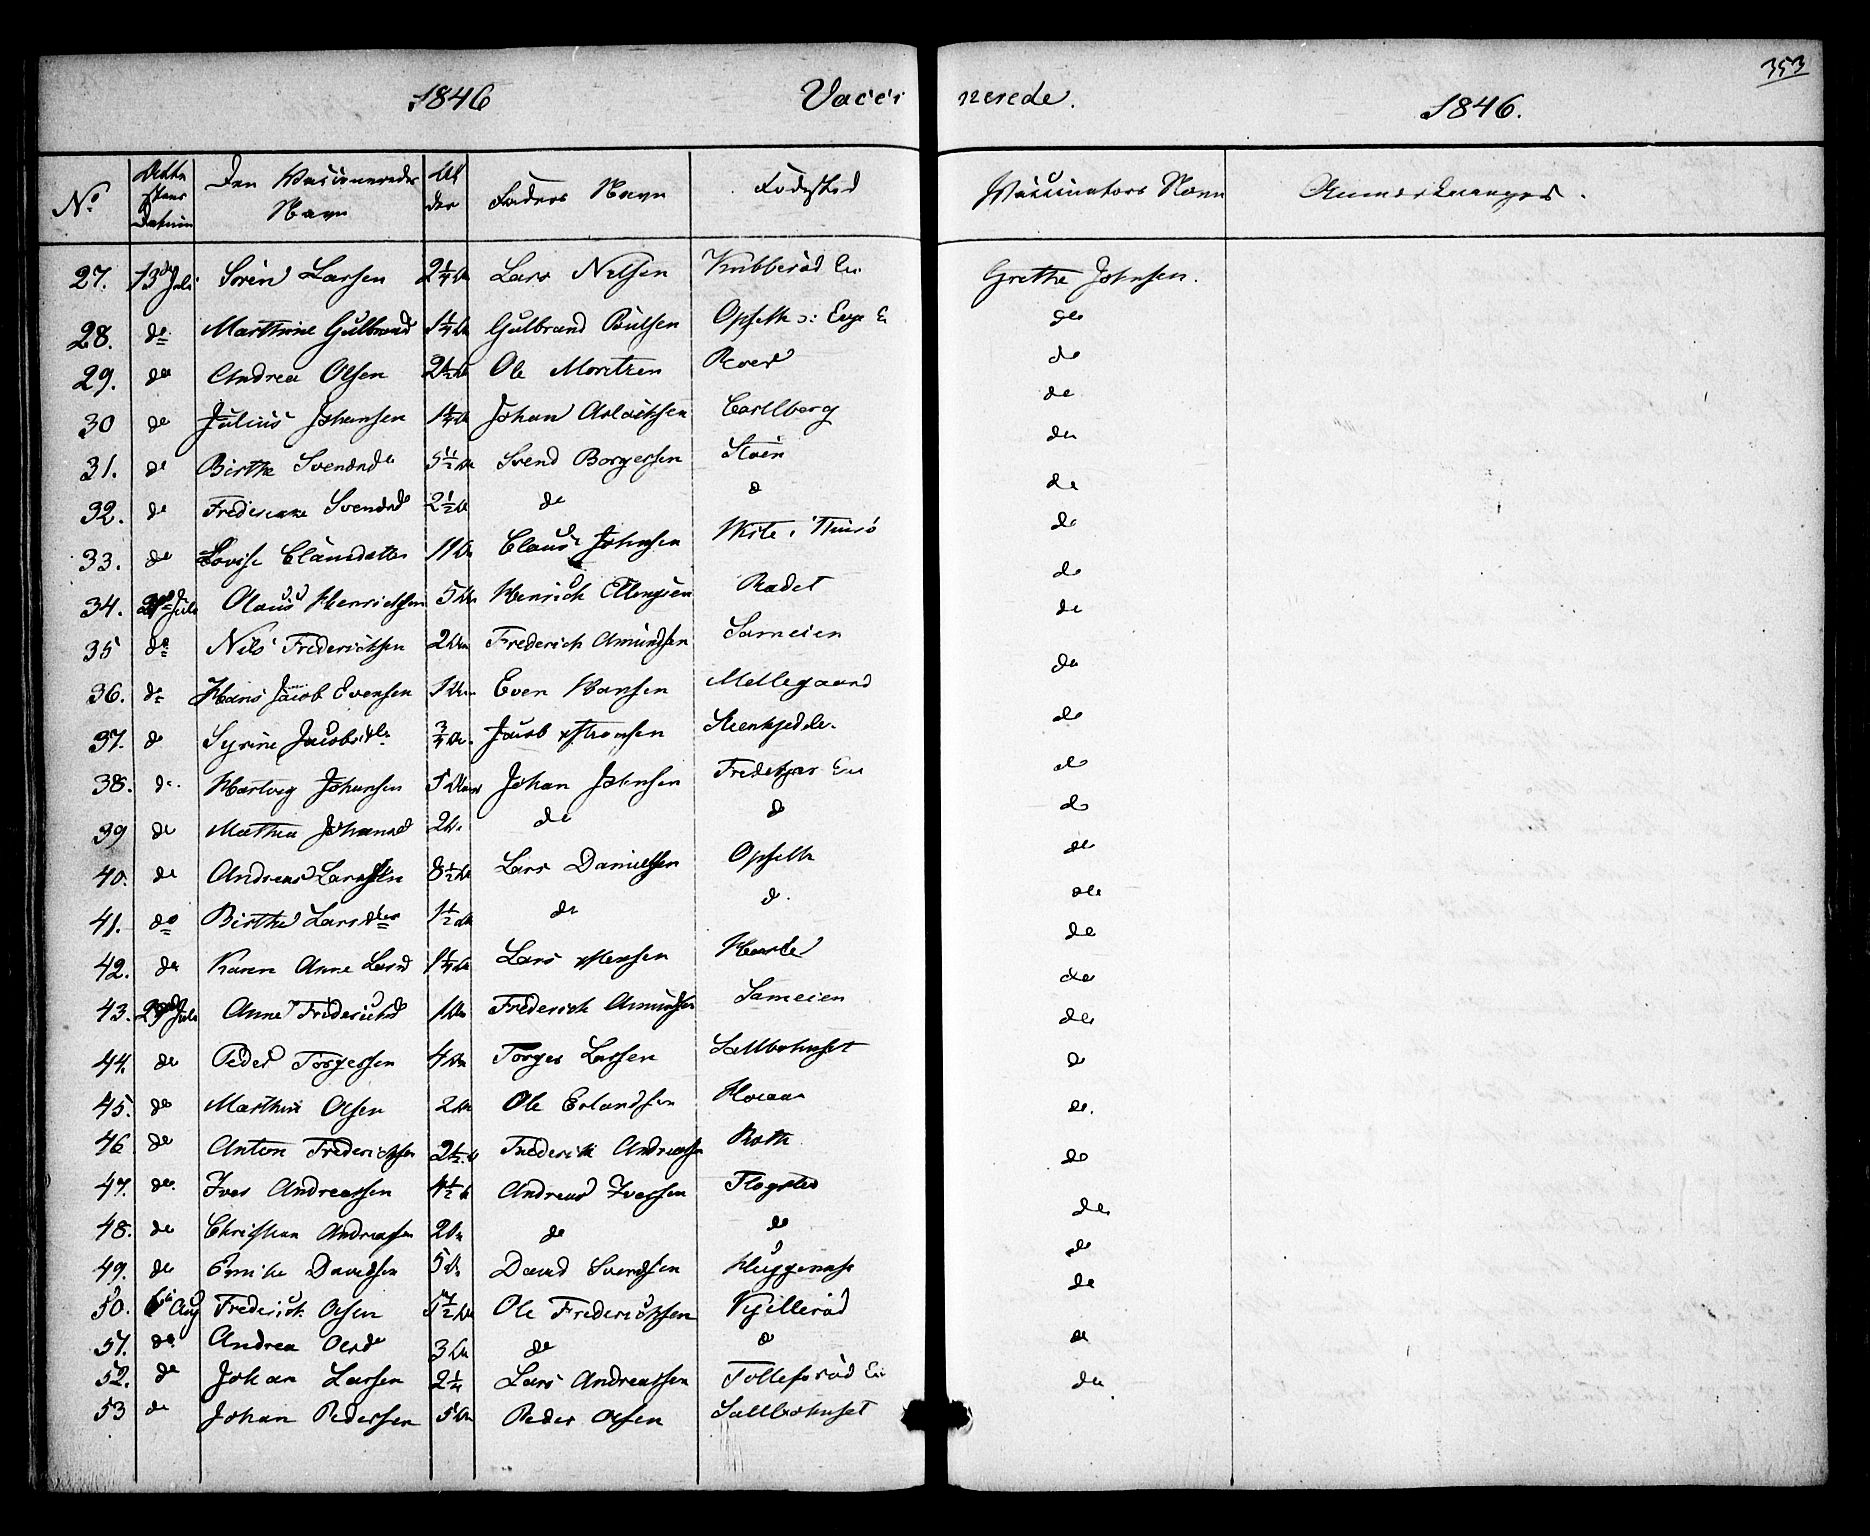 353
1846 Vacci nerede. 1846.
No. Attestens Datum Den Vaccineredes Navn Alder Faders Navn Födested Vaccinators Navn Anmærkninger.
27. 13de Juli Sören Larsen 2 1/4 Lars Nilsen Kubberöd Grethe Johnsen.
28. do Marthine Gulbrand 1 1/4 Gulbrand Bülsen Opseth do
29. do Andrea Olsen 2 1/2 Ole Moritzen Roed do
30 do Julius Johansen 1 1/4 Johan Aslacksen Carllberg do
31. do Birthe Svendsd 5 1/2 Svend Borgersen Stöen do
32. do Frederikke Svendsd 2 1/2 do do do
33. do Lovise Clausdatter 11 Claus Johnsen i Thusö do
34. Juli Olaus Henrichsen 5 Henrich Ellingsen Rådet do
35 do Nils Frederichsen 2 Frederich Amundsen Sameien do
36. do Hans Jacob Evensen 1 Even Hansen Mellegaard do
37. do Syrine Jacobsdtr 3/4 Jacob Thomsen Steenkjedelen do
38. do Hartvig Johansen 5 Johan Johnsen do
39 do Mathea Johansd 2 do do do
40. do Andreas Larssen 8 1/2 Lars Danielsen Opseth do
41. do Birthe Larsdter 1 1/2 do do do
42. do Karen Anne Larsd 1 1/4 Lars do
43. 29 Juli Anne Fridrichsd 1 Frederich Amundsen Sameien do
44. do Peder Torgersen 4 Torger Larsen Saltbohuset do
45. do Marthin Olsen 2 Ole Erlandsen do
46 do Anton Frederichsen 2 1/2 Frederich Andreasen Roth do
47. do Iver Andreassen 4 1/2 Andreas Iversen Flogsted do
48. do Christian Andreasen 2 do do do
49. do Davidsen 5 David Svendsen Huggenæs do
50. Aug Frederich Olsen 5 1/2 Ole Frederichsen Kjilleröd do
51. do Andrea Olsd 3 do do do
52. do Johan Larsen 2 1/4 Lars Andreassen Tollefsröd do
53 do Johan Pedersen 5 Peder Olsen Saltbohuset